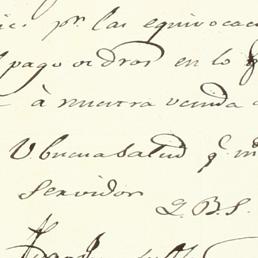 ic. pr. las equivocac
pago vidros en lo
à nuestra venida
V buena salud q.e m
servidor
Q. B. S.